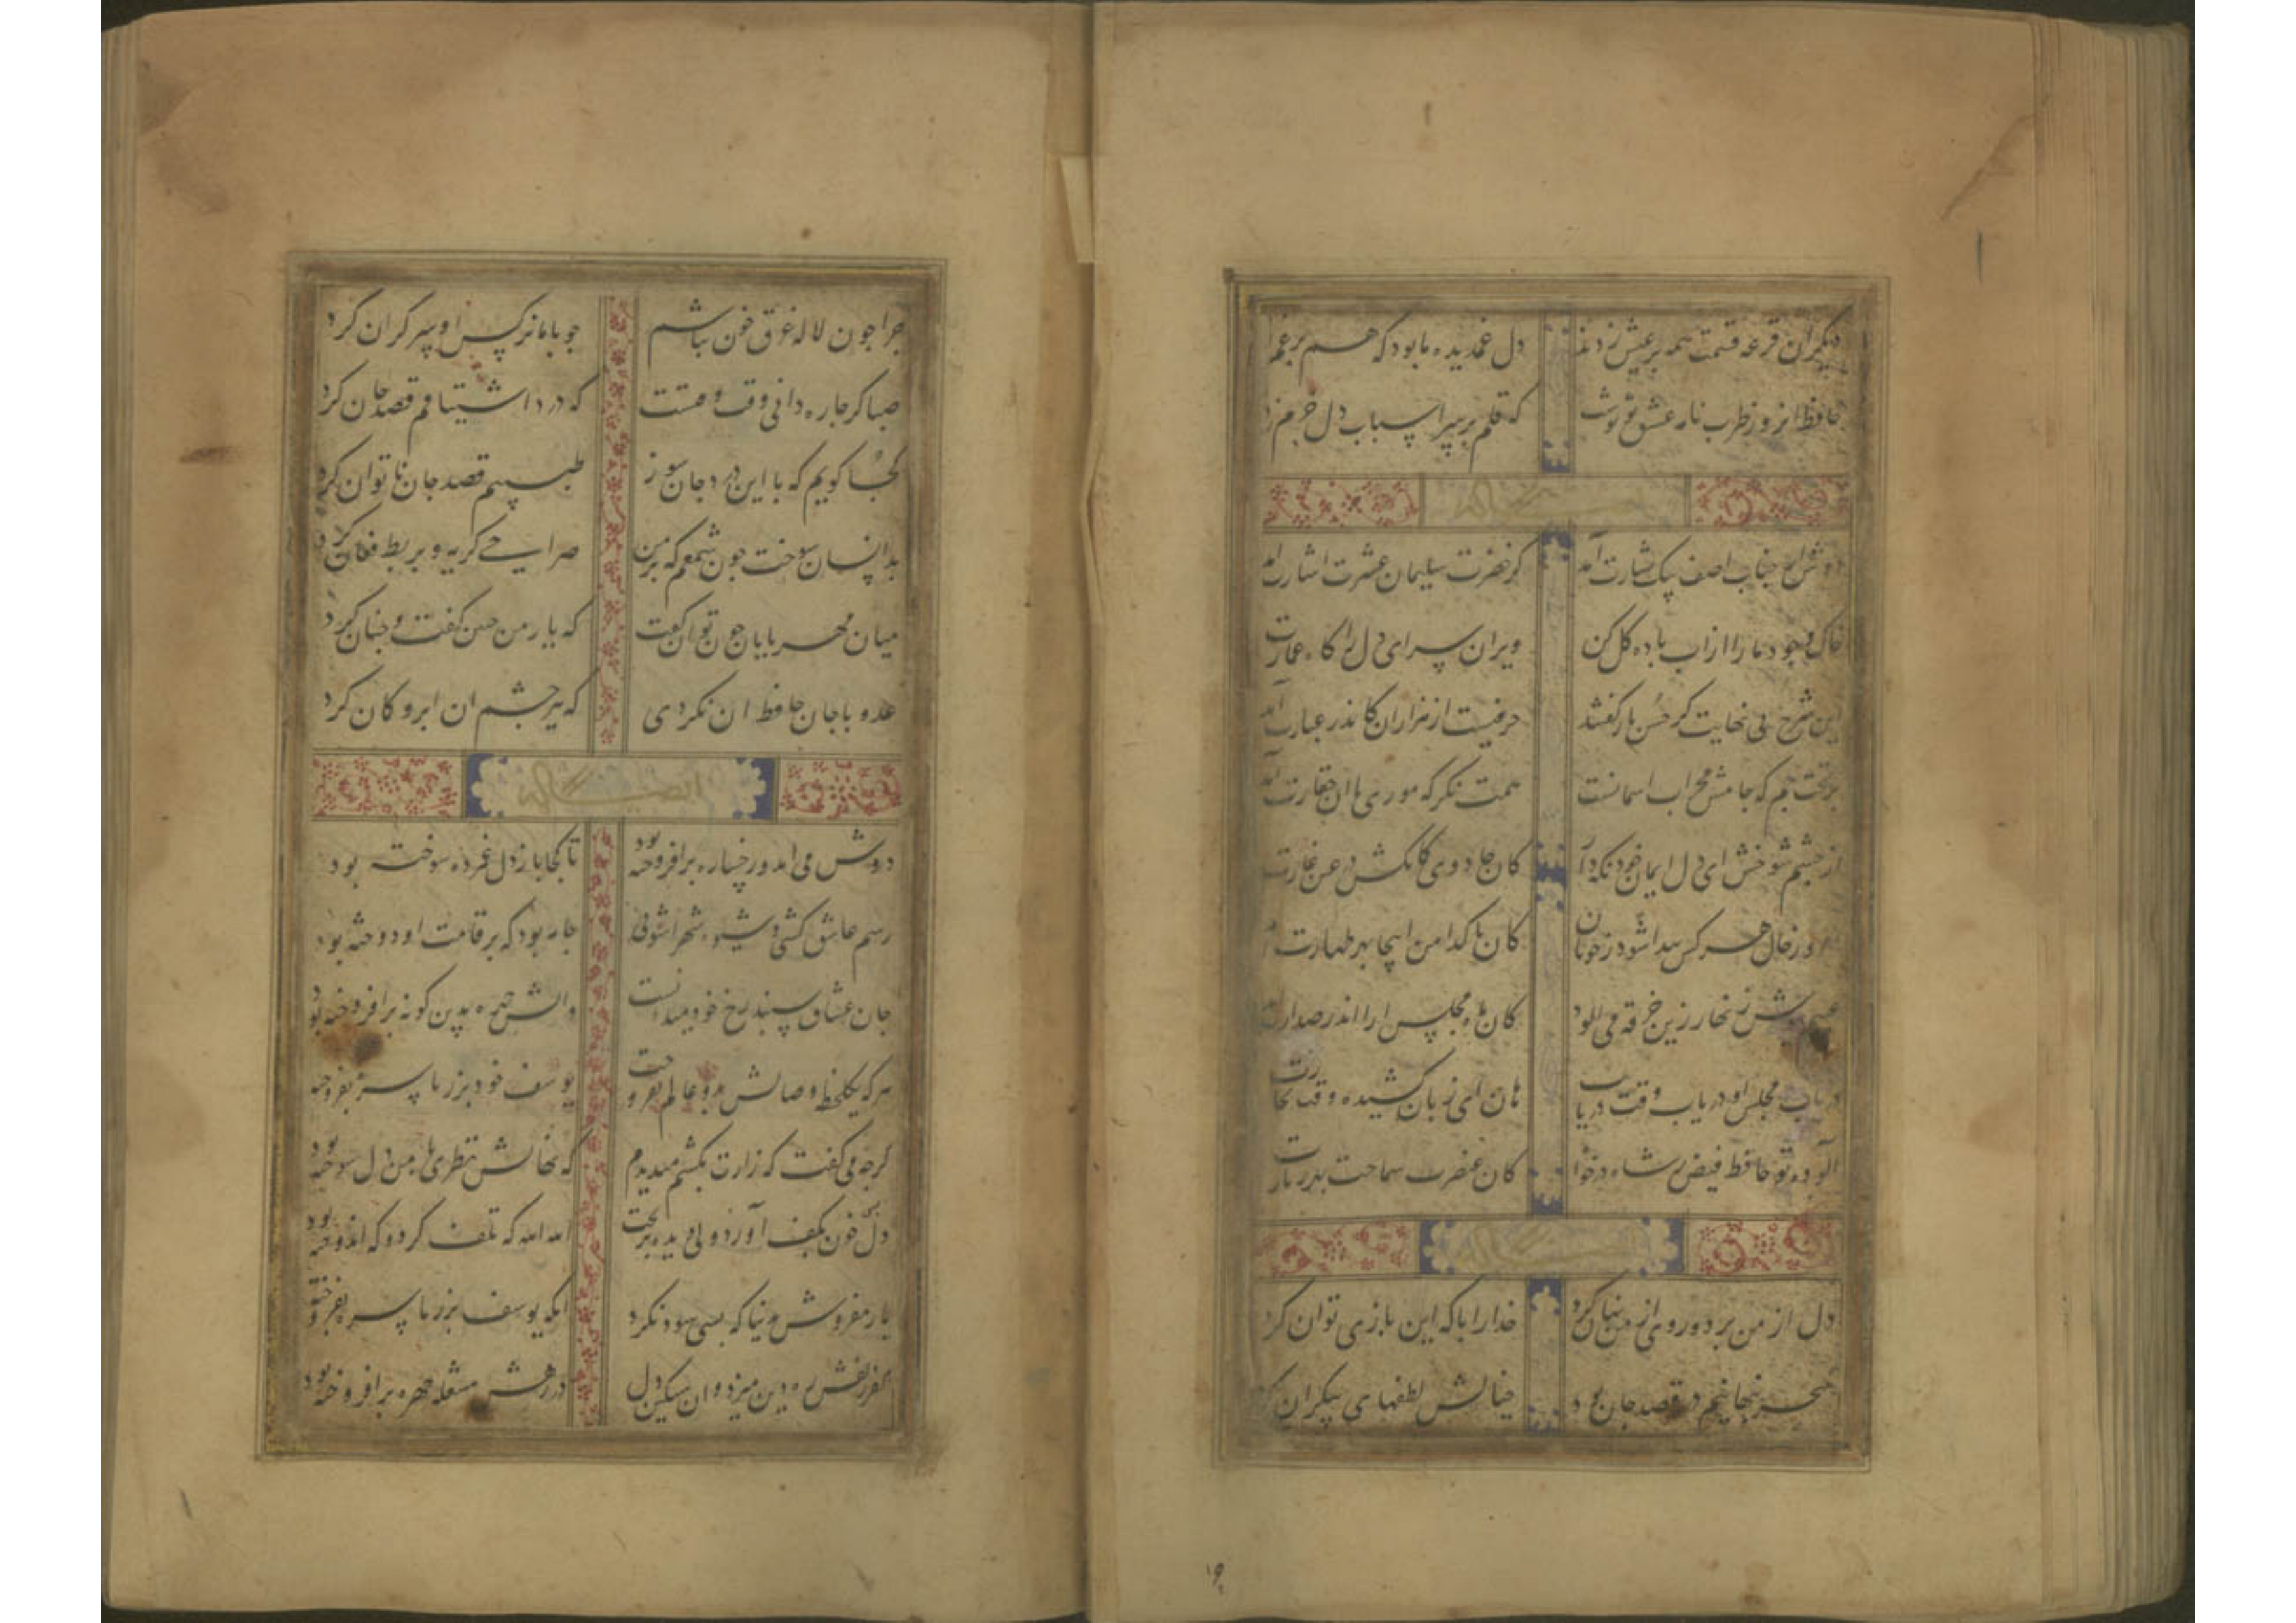 دیگران قرعه قسمت همه بر عیش زدند دل غمدیده ما بود که هم بر غم
حافظ انروز طرب نامه عشق تو نوشت که قلم بر سر اسباب دل خرم زد
دوش از جناب اصف پیک بشارت آمد کز حضرت سلیمان عشرت اشارت آمد
خاک وجود ما را از اب باده کل کن ویران سرای دل را کاه عمارت
این شرح بی نهایت کز حسن یار کفتند حرفیست از هزاران کاندر عبارت آمد
بر تخت جم که جامش محراب اسمانست همت نکر که موری با ان حقارت آمد
از چشم شوخش ای دل ایمان خود نکه دار کان جادوی کمانکش بر عزم غارت
امروز حال هر کس پیدا شود ز خوبان کان ماه مجلس ارا اندر صدارت
عیبم بپوش زنهار زین خرقه می الود کان پاکدامن اینجا بهر طهارت
دریاب مجلس او دریاب وقت دریاب هان ای زیان کشیده وقت تجارت
آلوده تو حافظ فیضی ز شاه درخواه کان عنصر سماحت بهر طهارت
دل از من برد و روی از من نهان کرد خدا را با که این بازی توان کرد
سحر تنهاییم در قصد جان بود خیالش لطفهای بیکران کرد
چرا چون لاله غرق خون نباشم چو با ما نرکس او سر کران کرد
صبا کر چاره دانی وقت وقتست که درد اشتیاقم قصد جان کرد
کجا کویم که با این درد جان سوز طبیبم قصد جان ناتوان کرد
بدانسان سوخت چون شمعم که بر من صراحی کریه و بربط فغان کرد
میان مهربانان چون توان کفت که یار من چنین کفت و چنان کرد
عدو با جان حافظ ان نکردی که تیر چشم ان ابرو کمان کرد
ایضا له
دوش می امد و رخساره برافروخته بود تا کجا باز دل غمزده سوخته بود
رسم عاشق کشی و شیوه شهر اشوبی جامه بود که بر قامت او دوخته بود
جان عشاق سپند رخ خود میدانست واتش چهره بدین کونه برافروخته بود
هر که یکلحظه وصالش بدو عالم بفروخت یوسف خود بزر ناسره بفروخته
کرچه می کفت که زارت بکشم میدیدم که نهانش نظری با من دل سوخته بود
دل بسی خون بکف آورد ولی دیده بریخت الله الله که تلف کرد و که اندوخته بود
یار مفروش بدنیا که بسی سود نکرد انکه یوسف بزر ناسره بفروخته
کفر زلفش ره دین میزد و ان سنکین دل در رهش مشعله چهره برافروخته بود